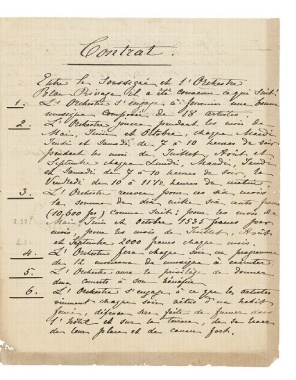 Contrat.
Entre le Soussigné et l'Orchestre
il a été convenu ce qui suit:
1. L'Orchestre s'engage à fournir une bonne
musique Composée de 18 artistes
2. L'Orchestre jouera pendant les mois de
Mai, Juin et Octobre, chaque Mardi
Jeudi et Samedi de 7 à 10 heures du soir
pendant les mois de Juillet, Août et
Septembre chaque Lundi, Mardi, Jeudi
et Samedi de 7 à 10 heures du soir, le
Vendredi de 10 à 11½ heures du matin
3. L'Orchestre recevra pour ces six mois
la somme de dix mille six cents francs
(10,600 frs) Comme suit: pour les mois de
Mai, Juin et Octobre 1535 francs par
mois, pour les mois de Juillet, Août
et Septembre 2000 francs chaque mois
4. L'Orchestre fera chaque soir un programme
de 12 morceaux de musique à exécuter.
5. L'Orchestre aura le privilège de donner
deux concerts à son bénéfice
6. L'Orchestre s'engage à ce que les artistes
viennent chaque soir vêtus d'un habit
défense de fumer dans
l'hôtel et sur la terrasse, de se lever
de leur place et de causer fort.